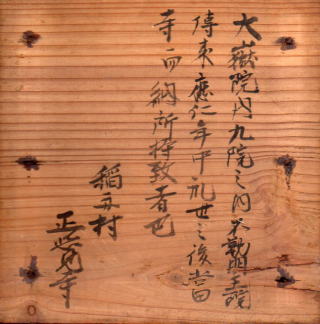 大嶽院内九院之内不動明王院
傳来應仁年中乱世之後當
寺而納所持致者也
稲毛村
正覚寺